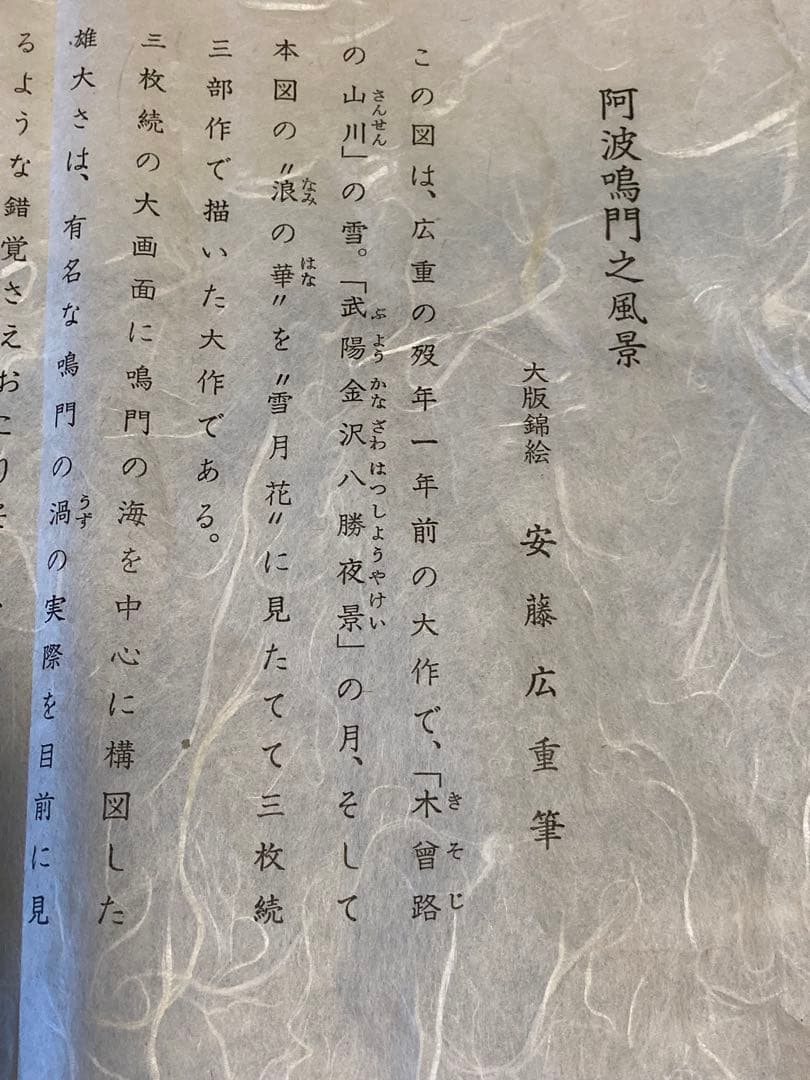 阿波鳴門之風景
大版錦絵 安藤広重筆
この図は、広重の歿年一年前の大作で、「木曾路
の山川」の雪。「武陽金沢八勝夜景」の月、そして
本図の〝浪の華〟を〝雪月花〟に見たてて三枚続
三部作で描いた大作である。
三枚続の大画面に鳴門の海を中心に構図した
雄大さは、有名な鳴門の渦の実際を目前に見
るような錯覚さえおこ